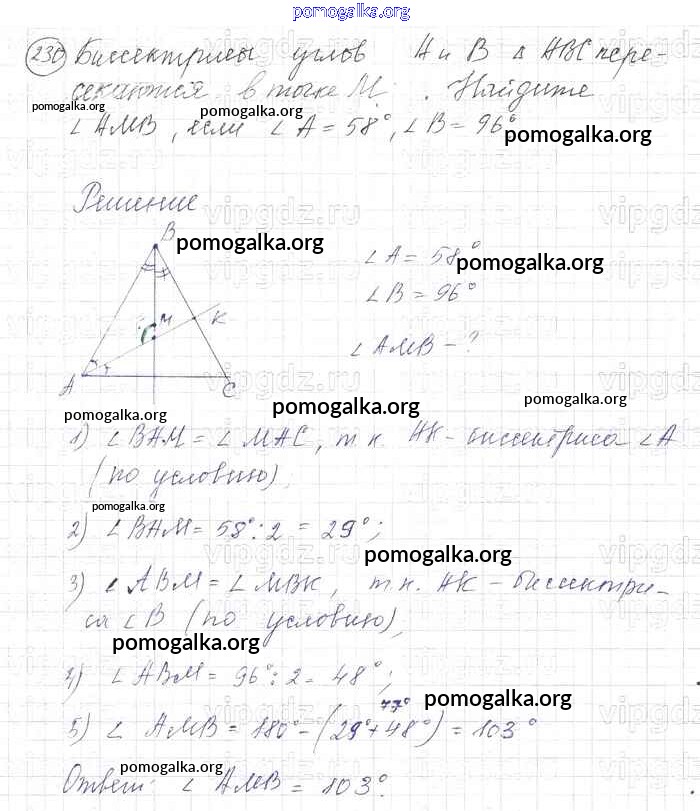 pomogalka.org
230 Биссектрисы углов A и B △ ABC пере-
секаются в точке M. Найдите
pomogalka.org pomogalka.org
∠ AMB, если ∠ A = 58°, ∠ B = 96°
pomogalka.org
Решение
vipgdz.ru vipgdz.ru
B pomogalka.org
∠ A = 58°
pomogalka.org
∠ B = 96°
M K
∠ AMB - ?
A C
pomogalka.org
pomogalka.org
pomogalka.org
1) ∠ BAM = ∠ MAC, т.к. AK - биссектриса ∠ A
(по условию)
pomogalka.org
2) ∠ BAM = 58° : 2 = 29°;
pomogalka.org
3) ∠ ABM = ∠ MBK, т.к. AK - биссектри-
са ∠ B (по условию),
pomogalka.org
4) ∠ ABM = 96° : 2 = 48°;
77° pomogalka.org
5) ∠ AMB = 180° - (29° + 48°) = 103°
pomogalka.org
Ответ: ∠ AMB = 103°.